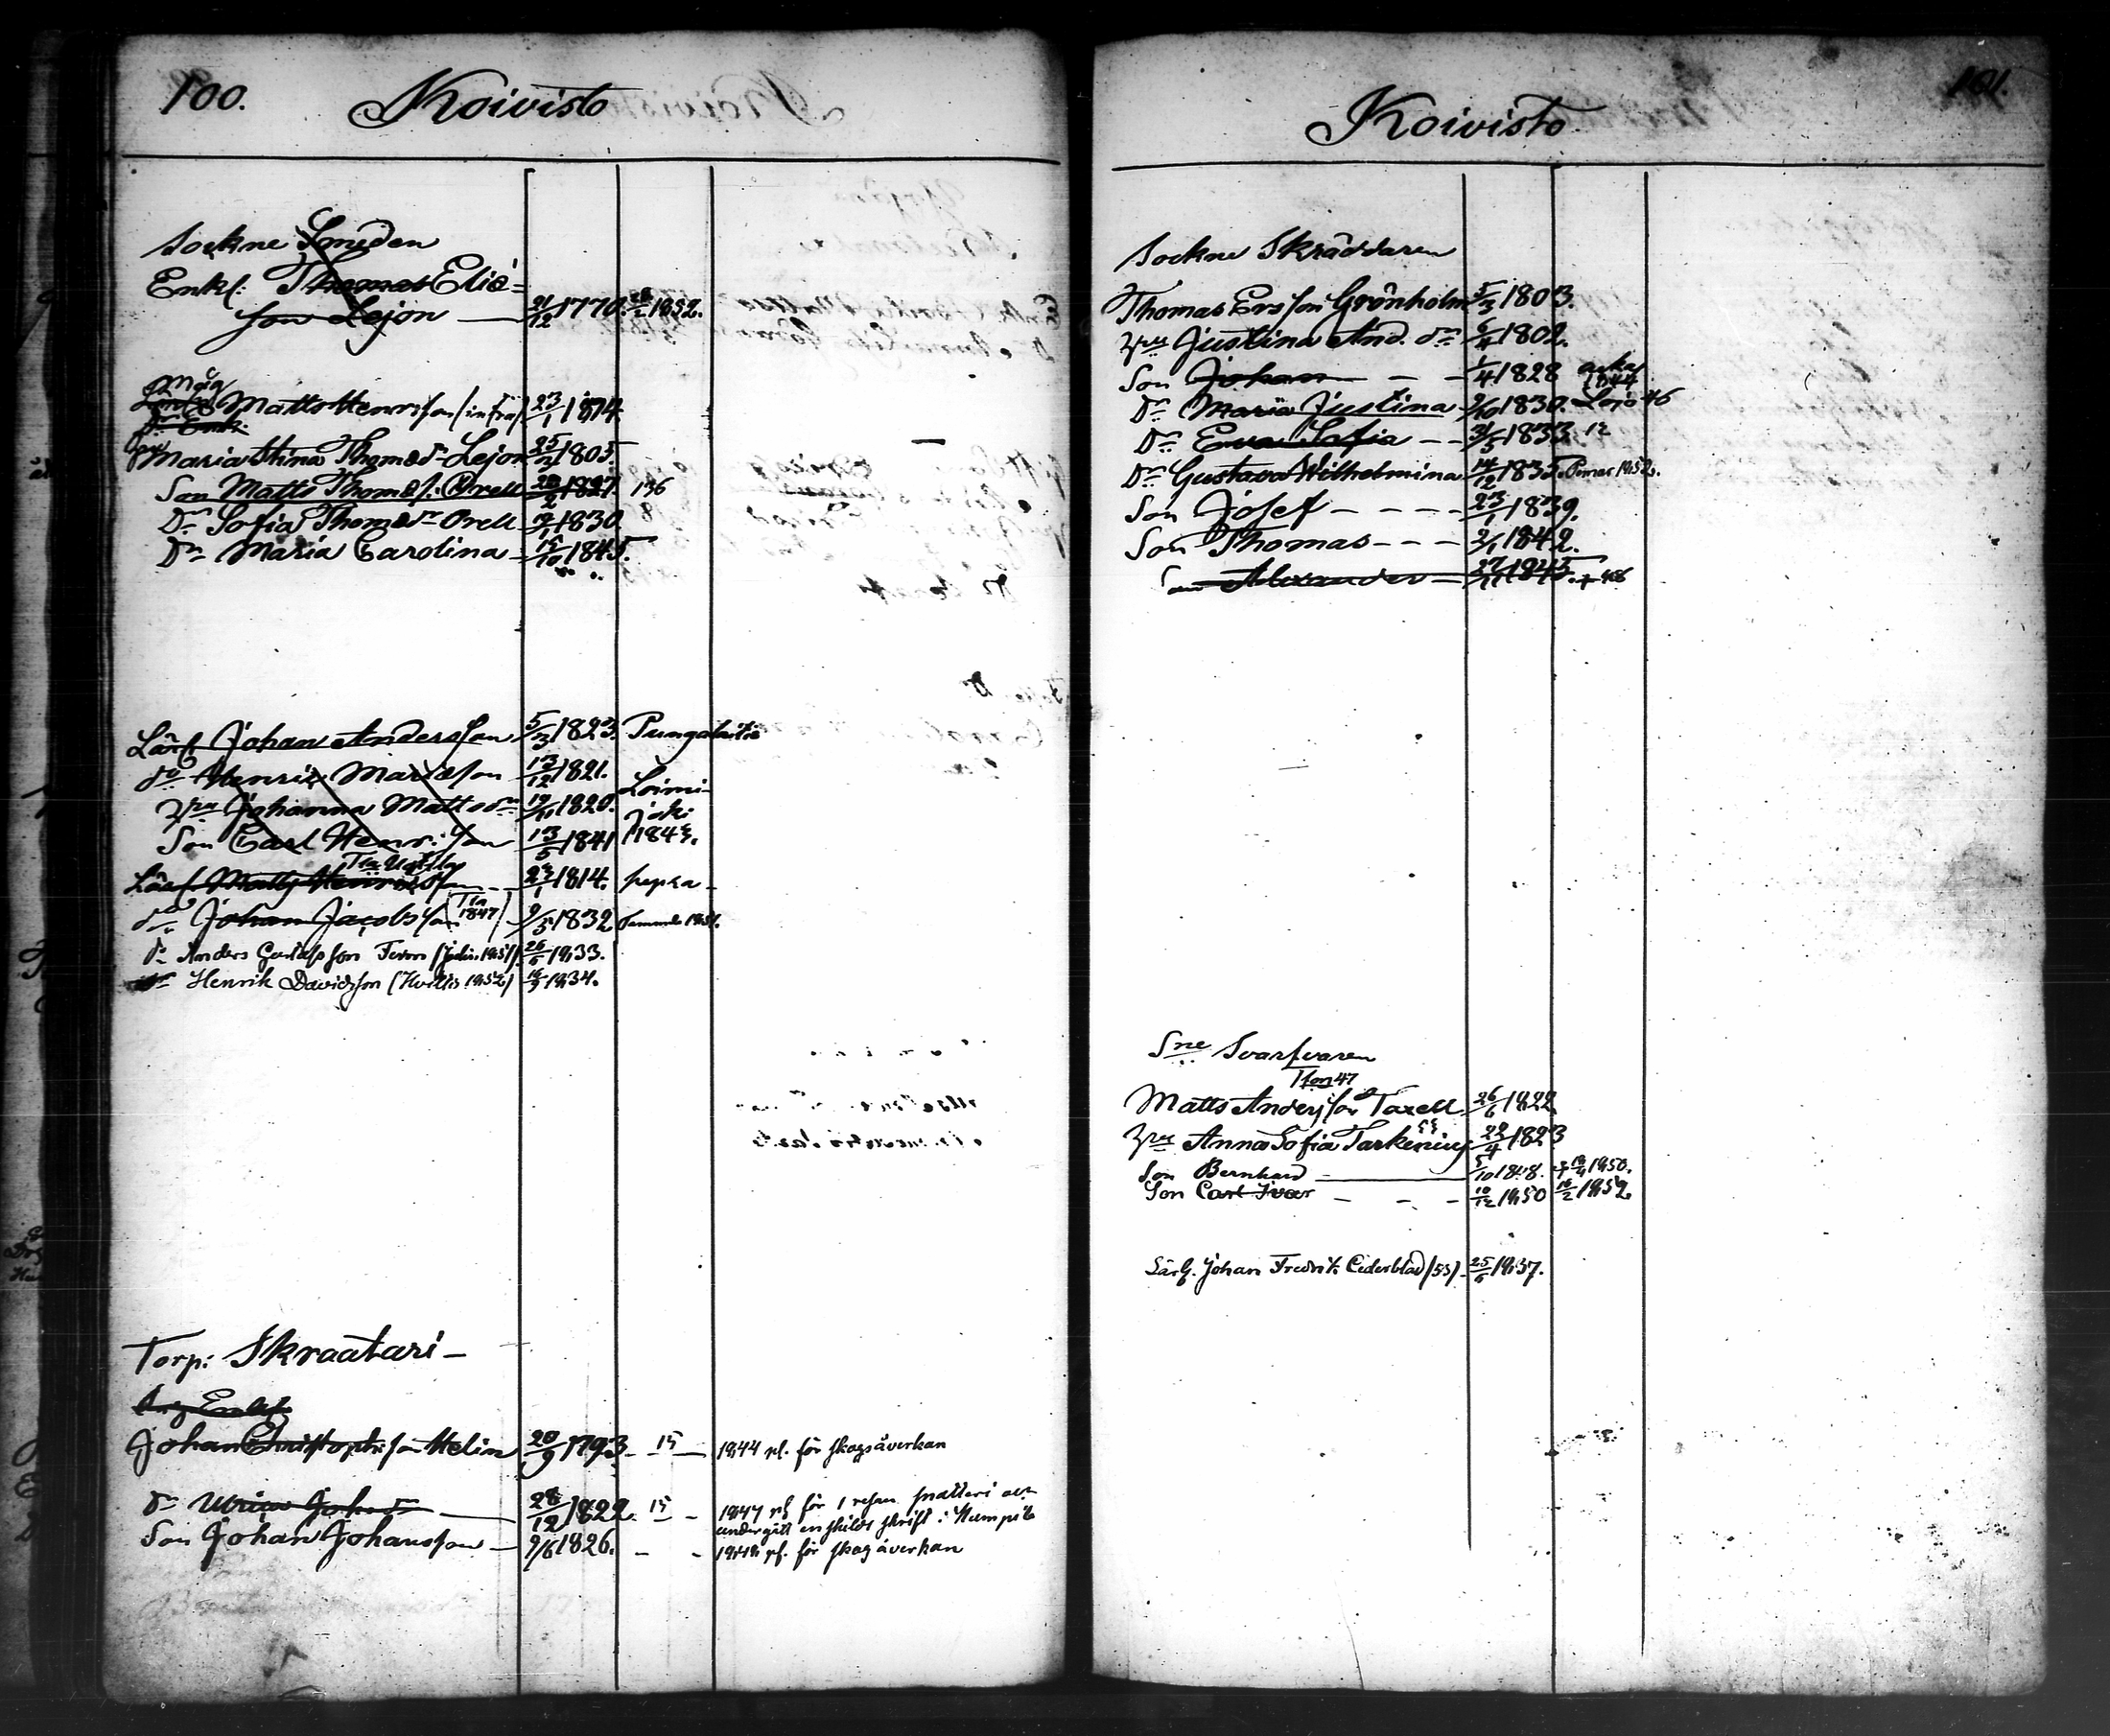 100. Koivisto
Sockne Smeden
Enkl: Thomas Eliæ-
son Lejon 21/12 1770. 1852.
Måg
Matts Henrikson (infra) 23/1 1814.
Maria Stina Thomæ dr Lejon 25/2 1805
Son Matts Thomæ f. Orell 1827 136
Dr Sofia Thomæ dr Orell 1830
Dr Maria Carolina 15/10 1845.
Lärl Johan Andersson 5/3 1823. Pungalaitio
do Henrik Mariæson 13/12 1821. Loimi-
Hru Johanna Matts dr 1820. joki
Son Carl Henr: Son 13/5 1841 1843.
Lärl Matts Henrikson 1814.
do Johan Jacobsson 1847 9/5 1832
do Anders Gustafsson 26/6 1833.
do Henrik Davidsson 1834.
Torp: Skraatari
Johan Christophersson Helin 20/9 1793 15 1844 pl. för skogsåverkan
Dr Ulrica Joh. dr 28/12 1822. 15 1847 pl för 1 resan snatteri och
undergått enskildt skrift i Humpila
Son Johan Johansson 9/6 1826. 1848 pl. för skogåverkan
101.
Koivisto
Sockne Skräddaren
Thomas Ersson Grönholm 5/3 1803.
Hru Justina And. dr 6/4 1802.
Son Johan 1/4 1828 1844
Dr Maria Justina 9/10 1830. Lojo 46
Dr Eva Sofia 1833. 12
Dr Gustava Wilhelmina 14/12 1835. Pemar 1852.
Son Josef 23/1 1839.
Son Thomas 2/1 1842.
Son Alexander 27/11 1845. + 46
Sne Svarfvaren
Matts Andersson Taxell 26/6 1822
Hru Anna Sofia Tarkenius 22/4 1823
Son Bernhard 5/10 1848. + 1850.
Son Carl Ivar 10/12 1850 16/2 1852.
Lärl. Johan Fredrik Cederblad (53) 25/6 1837.